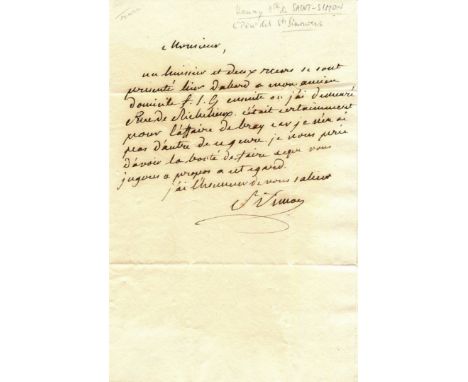 Henry Cte de SAINT-SIMON
(Père des St Simoniens
Monsieur,
un huissier et deux recors se sont
presenté hier dabord a mon ancien
domicile f. S. G ensuite ou j'ai demeuré
Rue de Richelieu. c'était certainement
pour l'affaire de bray car je n'en ai
pas d'autre de ce genre je vous prie
d'avoir la bonté de faire ce que vous
jugerez a propos a cet egard.
j'ai l'honneur de vous saluer
St Simon